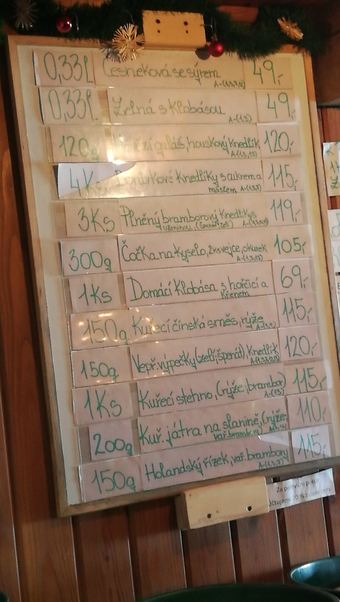 0,33l Česneková se sýrem 49,-
0,33l Zelná s klobásou 49,-
120g guláš, houskový knedlík 120,-
4Ks knedlíky s cukrem a máslem 115,-
3Ks Plněný bramborový knedlík 119,-
300g Čočka na kyselo, 2x vejce, okurek 105,-
1Ks Domácí klobása s hořčicí a křenem 69,-
150g Kuřecí čínská směs, rýže 115,-
150g Vepř. výpečky (zelí, špenát) Knedlík 120,-
1Ks Kuřecí stehno, (rýže, brambor) 115,-
200g Kuř. játra na slanině, (rýže 110,-
150g Holandský řízek, vař. brambory 115,-